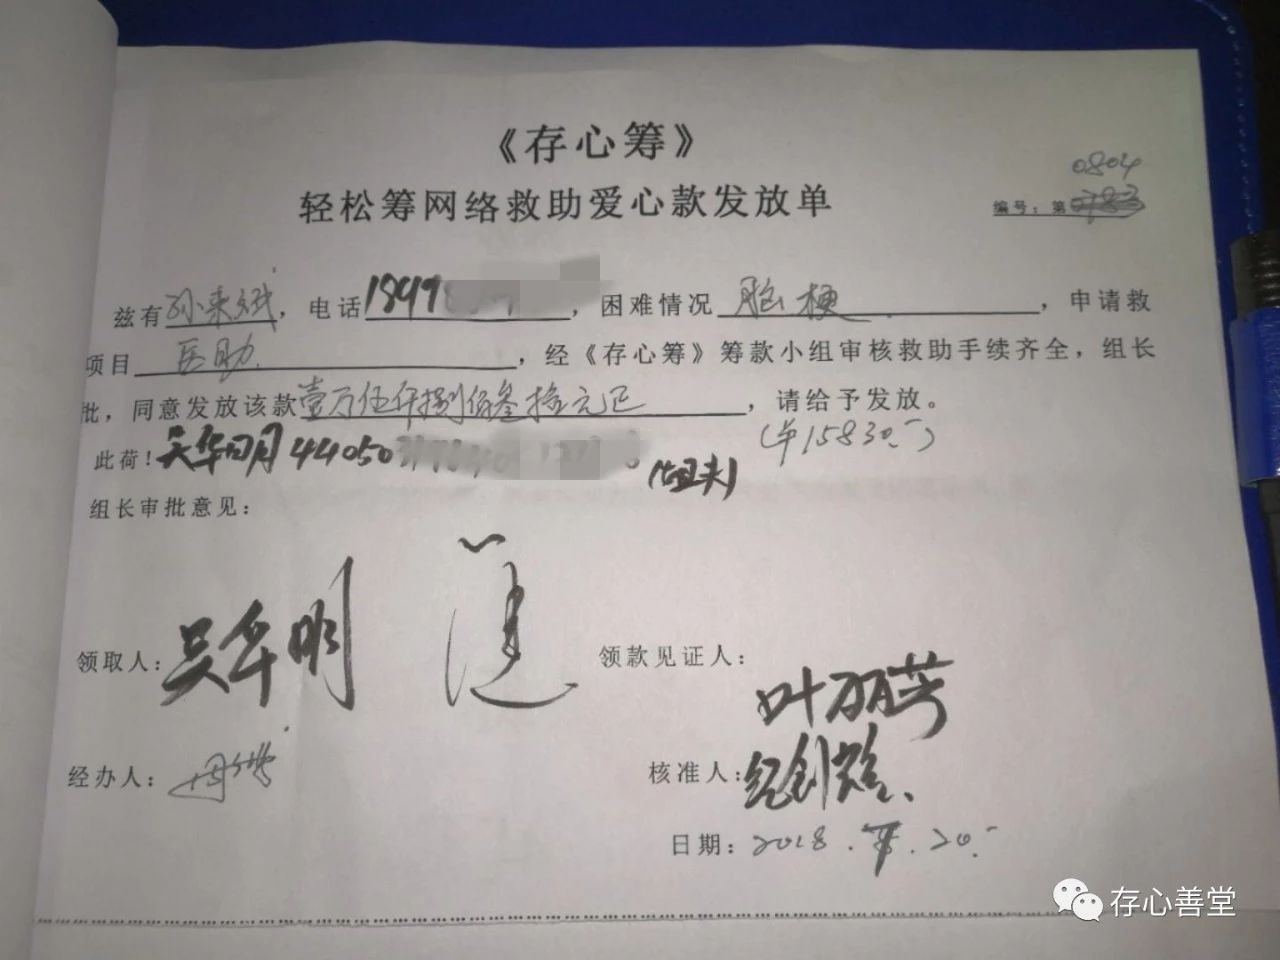 《存心筹》
轻松筹网络救助爱心款发放单
0804
编号：第
兹有孙来斌，电话1899，困难情况脑梗，申请救
项目医助，经《存心筹》筹款小组审核救助手续齐全，组长
批，同意发放该款壹万伍仟捌佰叁拾元正，请给予发放。
(¥15830.-)
此荷！吴华明44050 (姐夫)
组长审批意见：
领取人：吴华明
领款见证人：
叶丽芳
经办人：
核准人：纪创
日期：2018. .20.
存心善堂